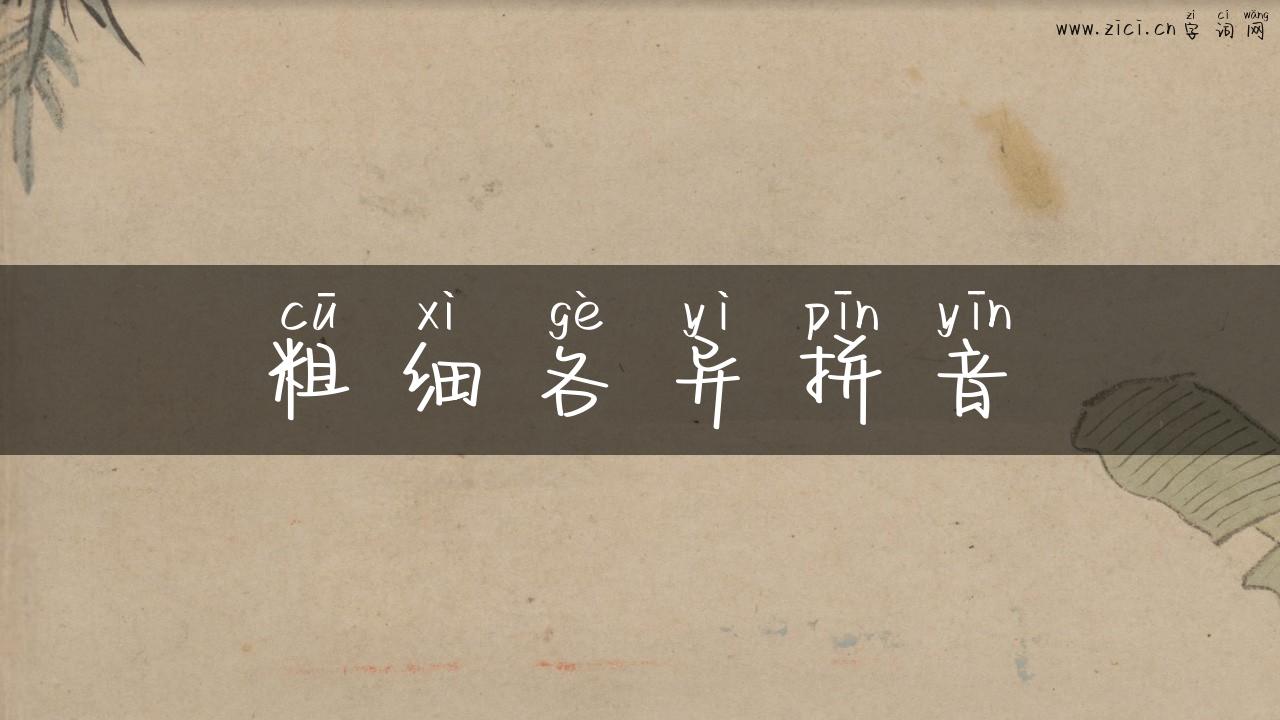 zì cí wǎng
www.zici.cn 字 词 网
cū xì gè yì pīn yīn
粗 细 各 异 拼 音